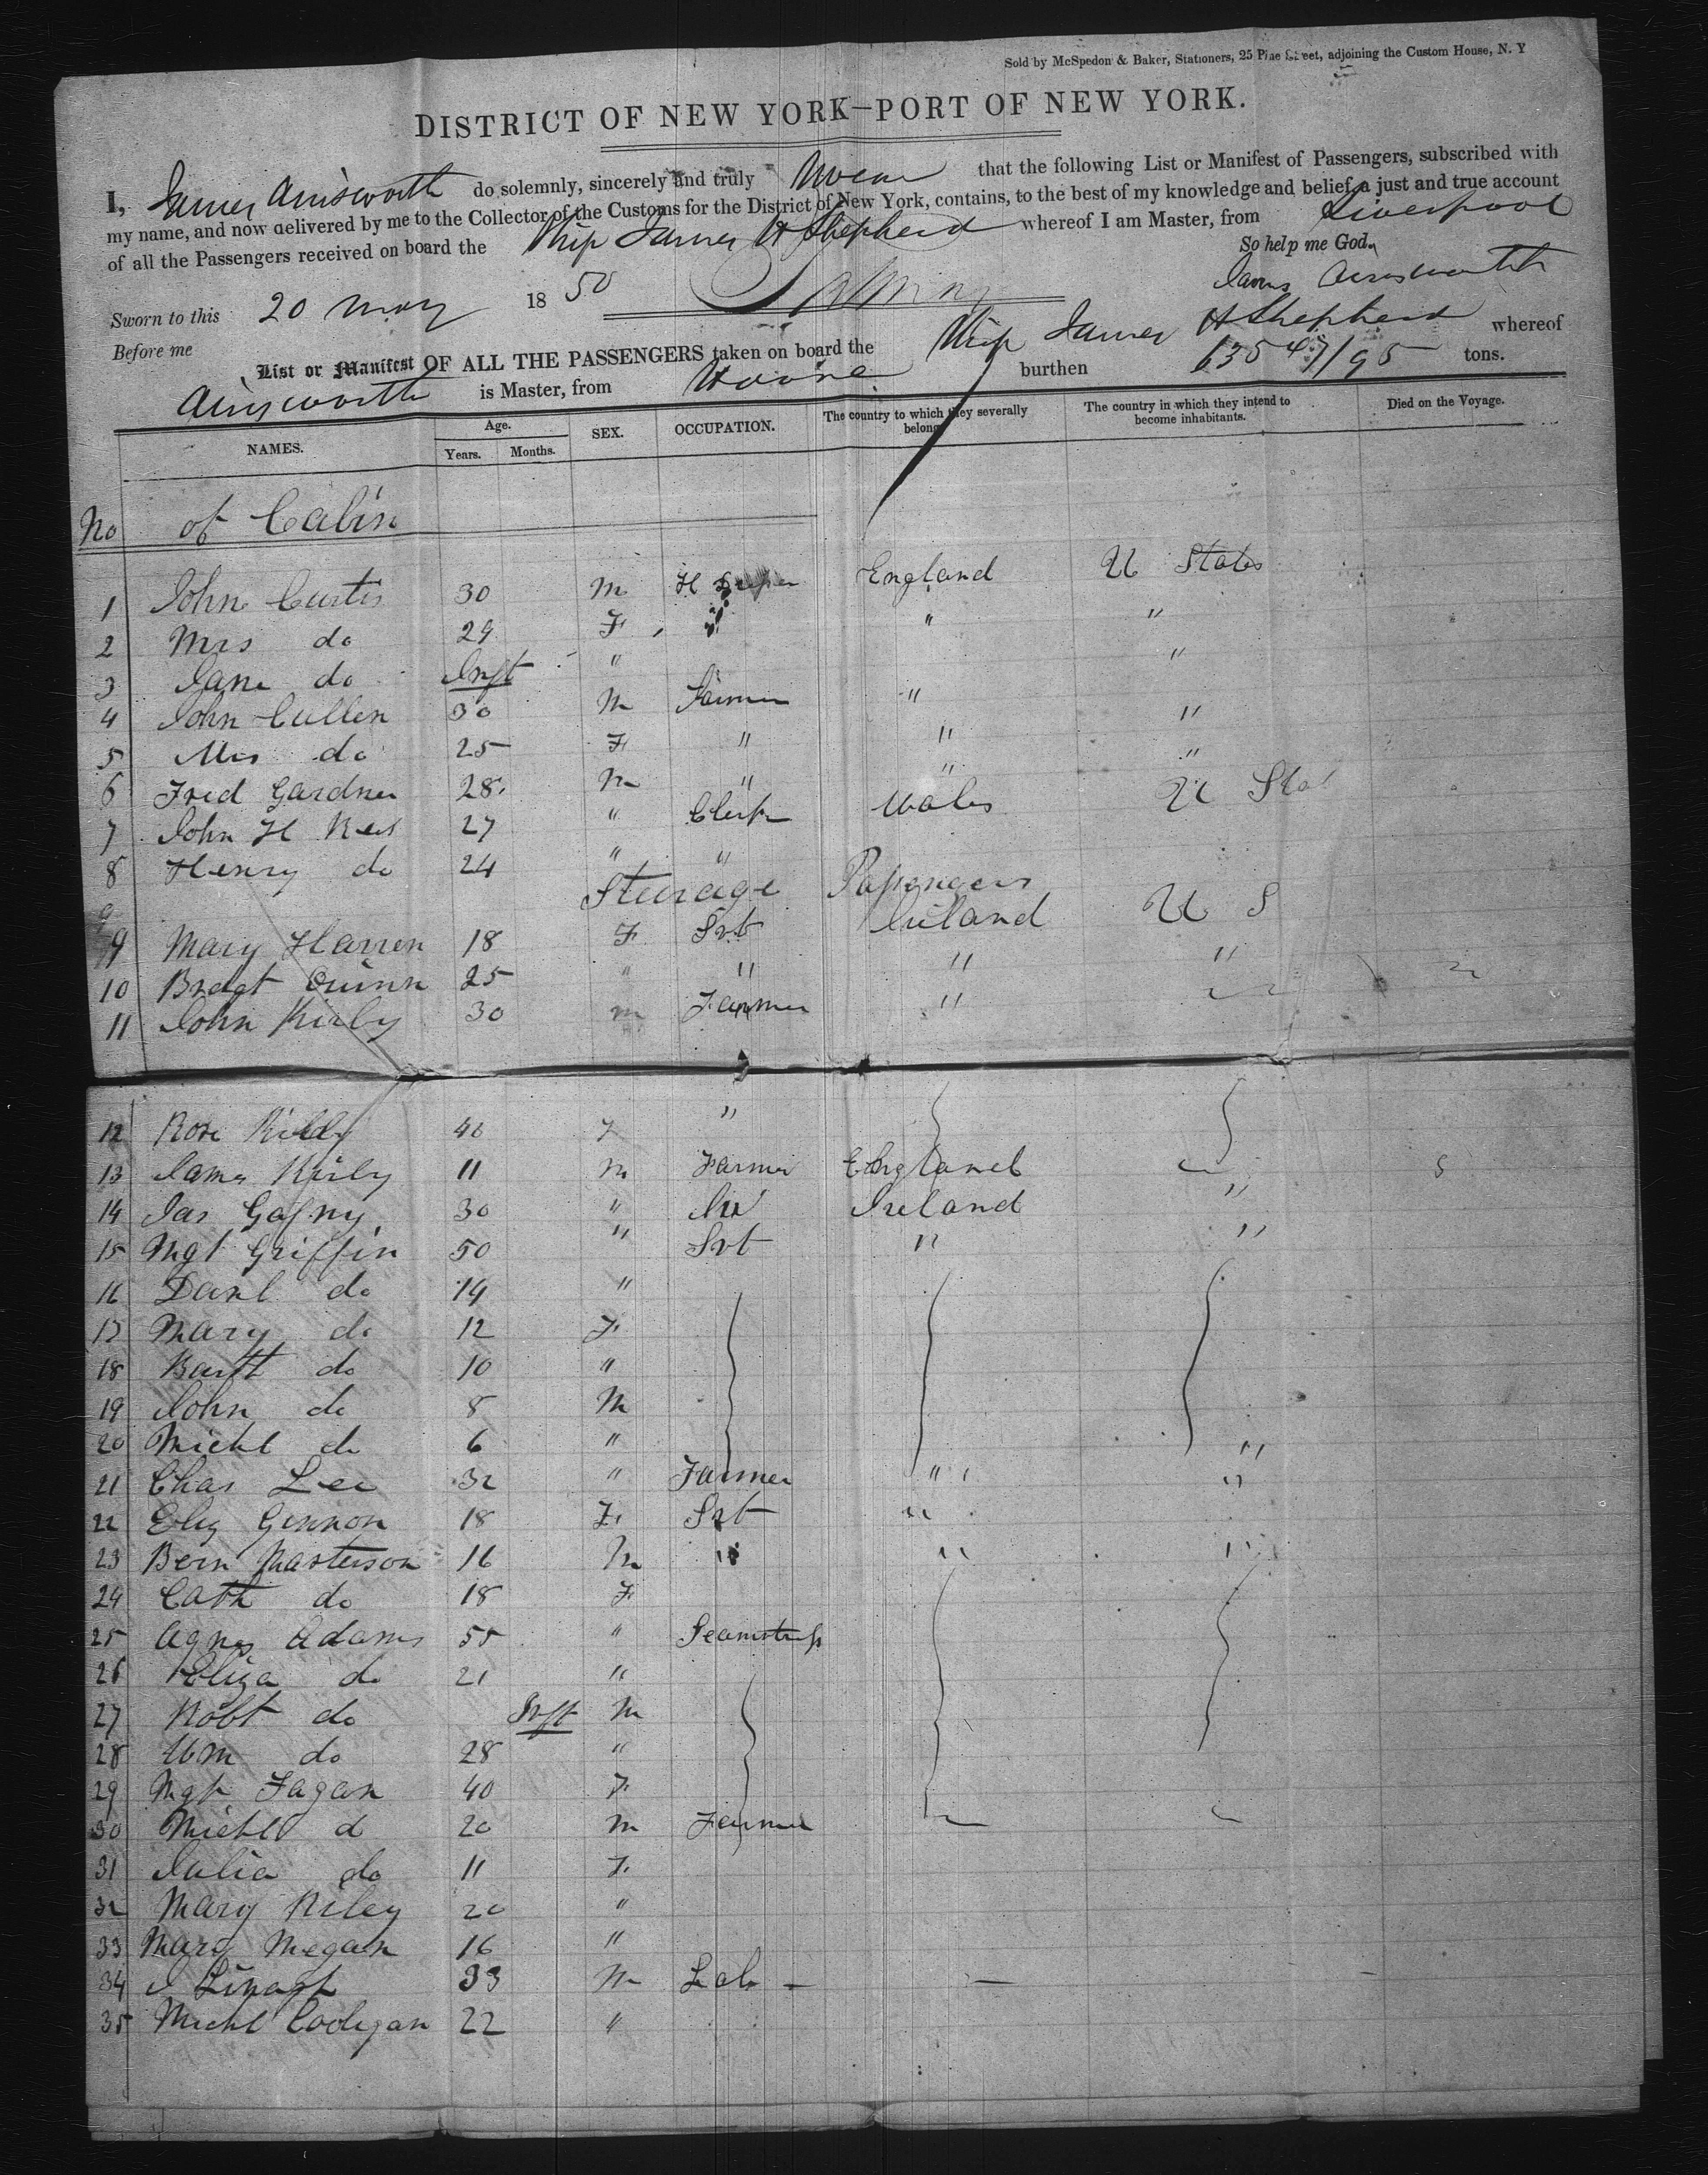 Sold by McSpedon & Baker, Stationers, 25 Pine Street, adjoining the Custom House, N. Y
DISTRICT OF NEW YORK—PORT OF NEW YORK.
I, James Ainsworth do solemnly, sincerely and truly swear that the following List or Manifest of Passengers, subscribed with
my name, and now delivered by me to the Collector of the Customs for the District of New York, contains, to the best of my knowledge and belief, a just and true account
of all the Passengers received on board the Ship James H Shepherd whereof I am Master, from Liverpool
So help me God.
Sworn to this 20 May 1850 James Ainsworth
Before me
List or Manifest OF ALL THE PASSENGERS taken on board the Ship James H Shepherd whereof
Ainsworth is Master, from burthen 635 47/95 tons.
NAMES. Age. Years. Months. SEX. OCCUPATION. The country to which they severally belong. The country in which they intend to become inhabitants. Died on the Voyage.
No of Cabin
1 John Curtis 30 M H England U States
2 Mrs do 29 F " " "
3 Jane do Inft " "
4 John Cullen 30 M Farmer " "
5 Mrs do 25 F " " "
6 Fred Gardner 28 M " "
7 John H Rees 27 " Clerk Wales U Sta
8 Henry do 24 " "
Steerage Passengers
9 Mary Harren 18 F Svt Ireland U S
10 Bridgt Quinn 25 " " " "
11 John Kirby 30 m Farmer "
12 Rose 40 F "
13 James Kirby 11 m Farmer England
14 Jas Gafny 30 " Ireland "
15 Mgt Griffin 50 " Svt " "
16 Danl do 14 "
17 Mary do 12 F
18 Bartt do 10 "
19 John do 8 M
20 Michl do 6 " "
21 Chas Lee 32 " Farmer " "
22 Eliz Gennon 18 F Svt "
23 Bern Masterson 16 M " " "
24 Cath do 18 F
25 Agnes Adams 55 " Seamstress
26 Eliza do 21 "
27 Robt do Inft M
28 Wm do 28 "
29 Mgt Fagan 40 F
30 Michl d 20 m Farmer
31 Julia do 11 F
32 Mary Riley 20 "
33 Mary Megan 16 "
34 33 M Lab —
35 Michl Cooligan 22 "